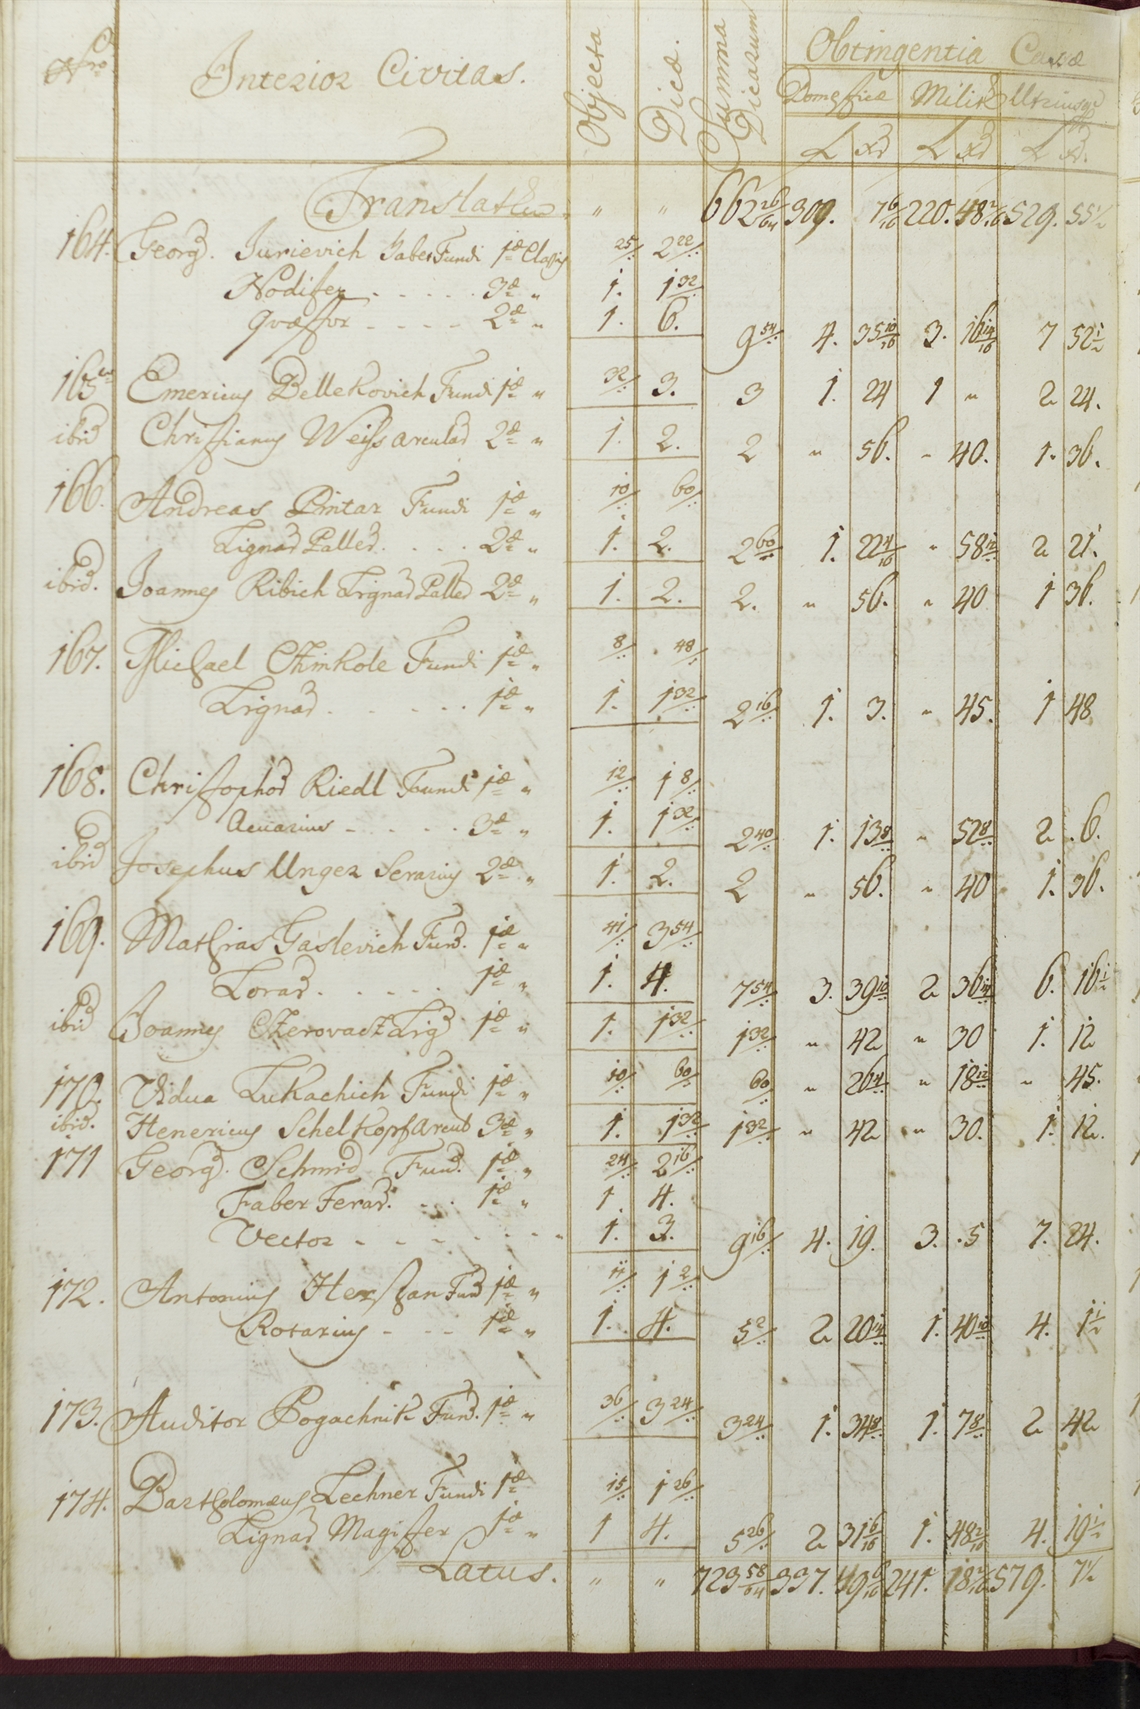 Nro Interior Civitas. Objecta Dicæ. Summa Dicarum Obtingentia Cassæ
Domesticæ Milit Utriusq
f Xr f Xr f Xr.
Translatum " " 662 26/64 309. 7 6/16 220. 48 529. 55 1/2
164. Georg. Jurievich Faber Fundi 1æ Classis 25/ 2 22
Nodifex 3æ " 1. 1 32
Quæstor 2æ " 1. 6. 9 54 4. 35 10/16 3. 16 14/16 7 52 1/2
165 Emericus Bellekovich Fundi 1æ " 32 3. 3 1. 24 1 " 2 24.
ibid Christianus Weiss arculad 2æ " 1. 2. 2 " 56. " 40. 1. 36.
166. Andreas Pintar Fundi 1æ " 10 60
Lignad Palled. 2æ " 1. 2. 2 60 1. 22 4/16 " 58 12 2 21.
ibid. Joannes Ribich Lignad Palled 2æ " 1. 2. 2. " 56. " 40 1 36.
167. Michael Chmkole Fundi 1æ " 8 48
Lignad 1æ " 1. 1 32 2 16 1. 3. " 45. 1 48
168. Christophod Riedl Fundi 1æ " 12 1 8
Acuarius 3æ " 1. 1 32 2 40 1. 13 8 " 52 8 2 .6.
ibid Josephus Unger Serarius 2æ " 1. 2. 2 " 56. " 40 1. 36.
169. Mathias Gaslevich Fund. 1æ " 41 3 54
Lorad. 1æ " 1. 4. 7 54 3. 39 10 2 36 14 6. 16 1/2
ibid Joannes Czerovacz Lig 1æ " 1. 1 32 1 32 " 42 " 30 1. 12
170. Vidua Lukachich Fundi 1æ " 10 60 60 " 26 4 " 18 12 " 45.
ibid. Henericus Schelkopf Arcul 3æ " 1. 1 32 1 32 " 42 " 30. 1. 12.
171 Georg. Schmid Fund. 1æ " 24 2 16
Faber Ferar. 1æ " 1 4.
Vector " 1. 3. 9 16 4. 19. 3. .5 7. 24.
172. Antonius Herszan Fund 1æ " 11 1 2
Rotarius 1æ " 1. 4. 5 2 2 20 14 1. 40 10 4. 1 1/2
173. Auditor Pogachnik Fund. 1æ " 36 3 24 3 24 1. 34 8 1. 7 8 2 42
174. Bartholomæus Lechner Fundi 1æ 15 1 26
Lignad Magister 1æ " 1 4. 5 26 2 31 6/16 1. 48 2/16 4. 19 1/2
Latus. " " 723 58/64 337. 49 6/16 241. 18 579. 7 1/2